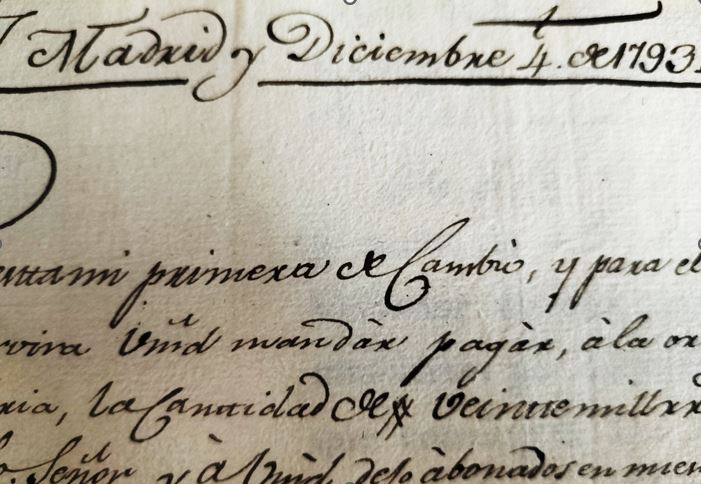 Madrid y Diciembre 4. de 1793
primera de Cambio, y para el
Vmd mandàr pagàr, à la or
ria, la Canttidad de Veinttemill rr
Señor y à Vmd. de lo àbonados en